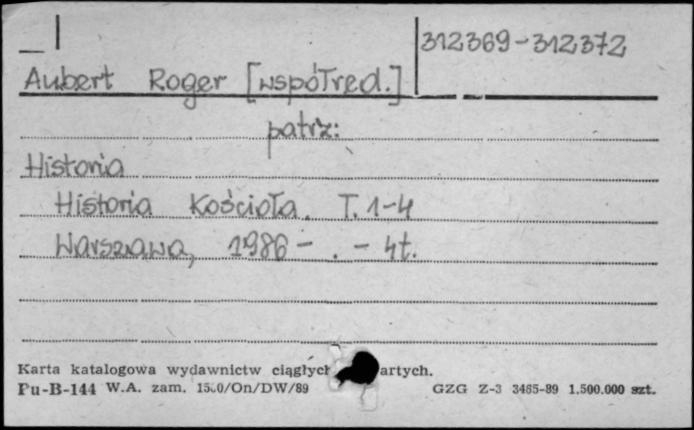 312369-312372
Aubert Roger [współred.]
patrz:
Historia
Historia Kościoła. T. 1-4
Warszawa, 1986 - . - 4t.
Karta katalogowa wydawnictw ciągłych
Pu-B-144 W.A. zam. /On/DW/89 GZG Z-3 3485-89 1.500.000 szt.